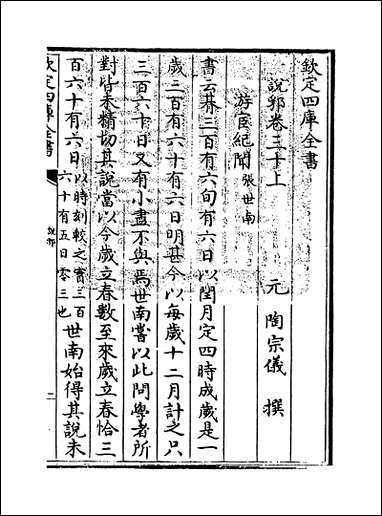 欽定四庫全書
說郛卷三十上
元 陶宗儀 撰
游宦紀聞 張世南
書云朞三百有六旬有六日以閏月定四時成歲是一
歲三百有六十有六日明甚今以每歲十二月計之只
三百六十日又有小盡不與焉世南嘗以此問學者所
對皆未精切其說當以今歲立春數至來歲立春恰三
百六十有六日以時刻較之實三百
六十有五日零三也世南始得其說未
欽定四庫全書
說郛
二